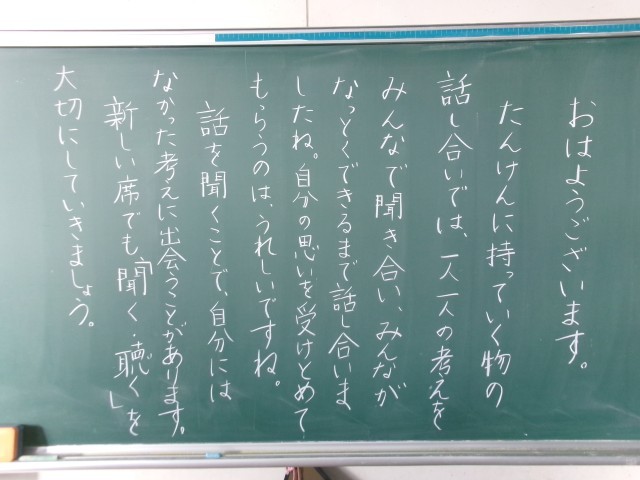 おはようございます。
たんけんに持っていく物の
話し合いでは、一人一人の考えを
みんなで聞き合い、みんなが
なっとくできるまで話し合いま
したね。自分の思いを受けとめて
もらうのは、うれしいですね。
話を聞くことで、自分には
なかった考えに出会うことがあります。
新しい席でも、「聞く・聴く」を
大切にしていきましょう。